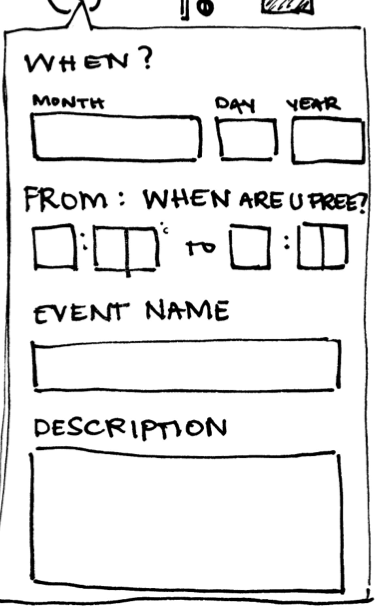 WHEN?
MONTH DAY YEAR
FROM: WHEN ARE U FREE?
: to :
EVENT NAME
DESCRIPTION